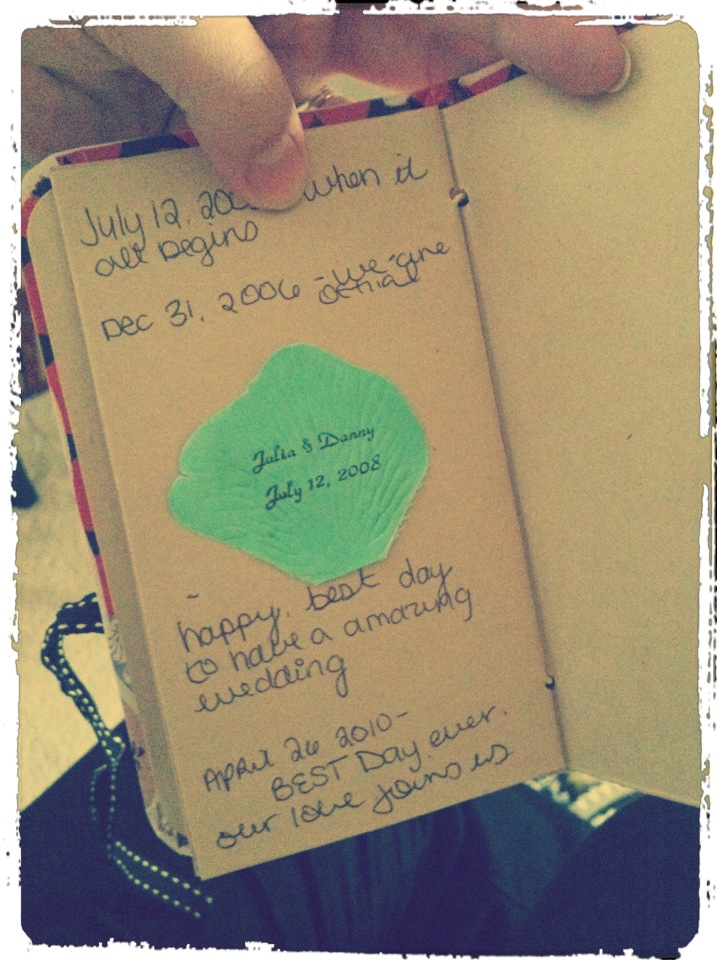 July 12, 200 when it
all begins
Dec 31, 2006 - we are
denial
Julia & Danny
July 12, 2008
- happy. best day
to have a amazing
wedding
April 26 2010-
BEST Day ever.
our love joins us